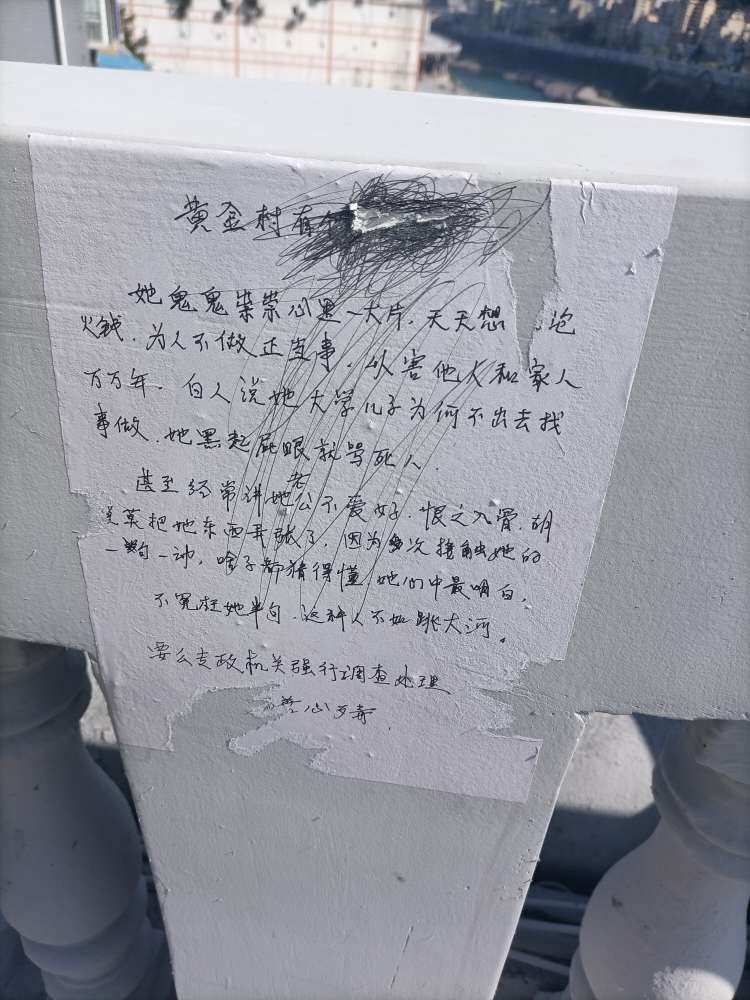 黄金村有个
她鬼鬼祟祟心黑一大片.天天想
火钱.为人不做正当事.以害他人和家人
万万年.白人说她大学儿子为何不出去找
事做.她黑起屁眼就骂死人.
甚至经常讲她老公不爱好.恨之入骨.胡
莫把她东西弄张了,因为多次接触她的
一句一动,啥子都猜得懂,她们中最明白.
不冤枉她半句.这种人不如跳大河。
要么支政机关强行调查处理
心歹毒